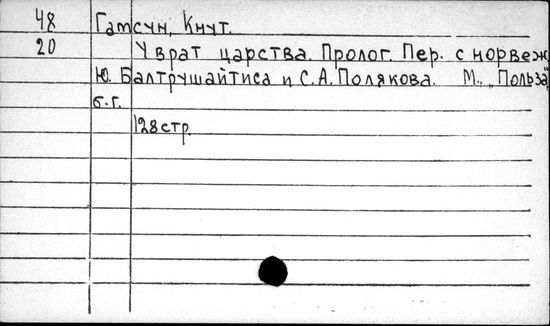 48 Гамсун, Кнут.
20 У врат царства. Пролог. Пер. с норвеж.
Ю. Балтрушайтиса и С.А.Полякова. М., „Польза",
б.г.
128стр.